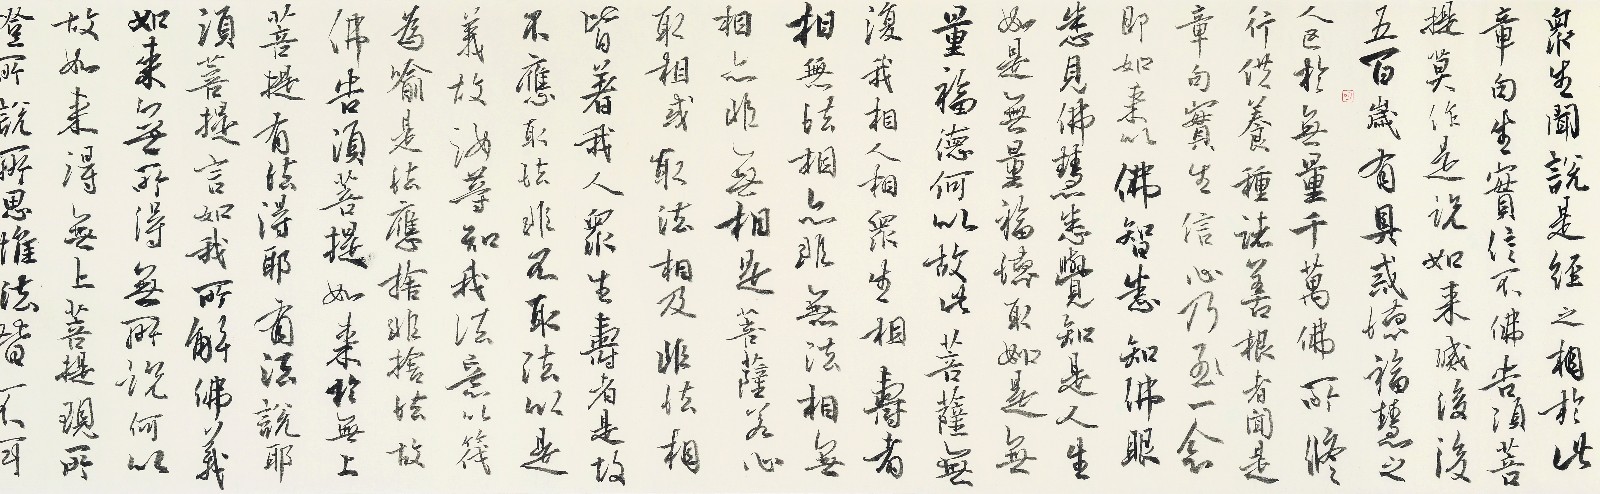 眾生聞說是經之相於此
章句生實信不佛告須菩
提莫作是說如来滅後後
五百歲有具戒德福慧之
人已於無量千萬佛所修
行供養種諸善根者聞是
章句實生信心乃至一念
即如来以佛智悉知佛眼
悉見佛慧悉覺知是人生
如是無量福德取如是無
量福德何以故此菩薩無
復我相人相眾生相壽者
相無法相亦非無法相無
相亦非無相是菩薩若心
取相或取法相及非法相
皆著我人眾生壽者是故
不應取法非不取法以是
義故汝等知我法意以筏
為喻是法應捨非捨法故
佛告須菩提如来於無上
菩提有法得耶有法說耶
須菩提言如我所解佛義
如来無所得無所說何以
故如来得無上菩提現所
登所說所思惟法皆不可